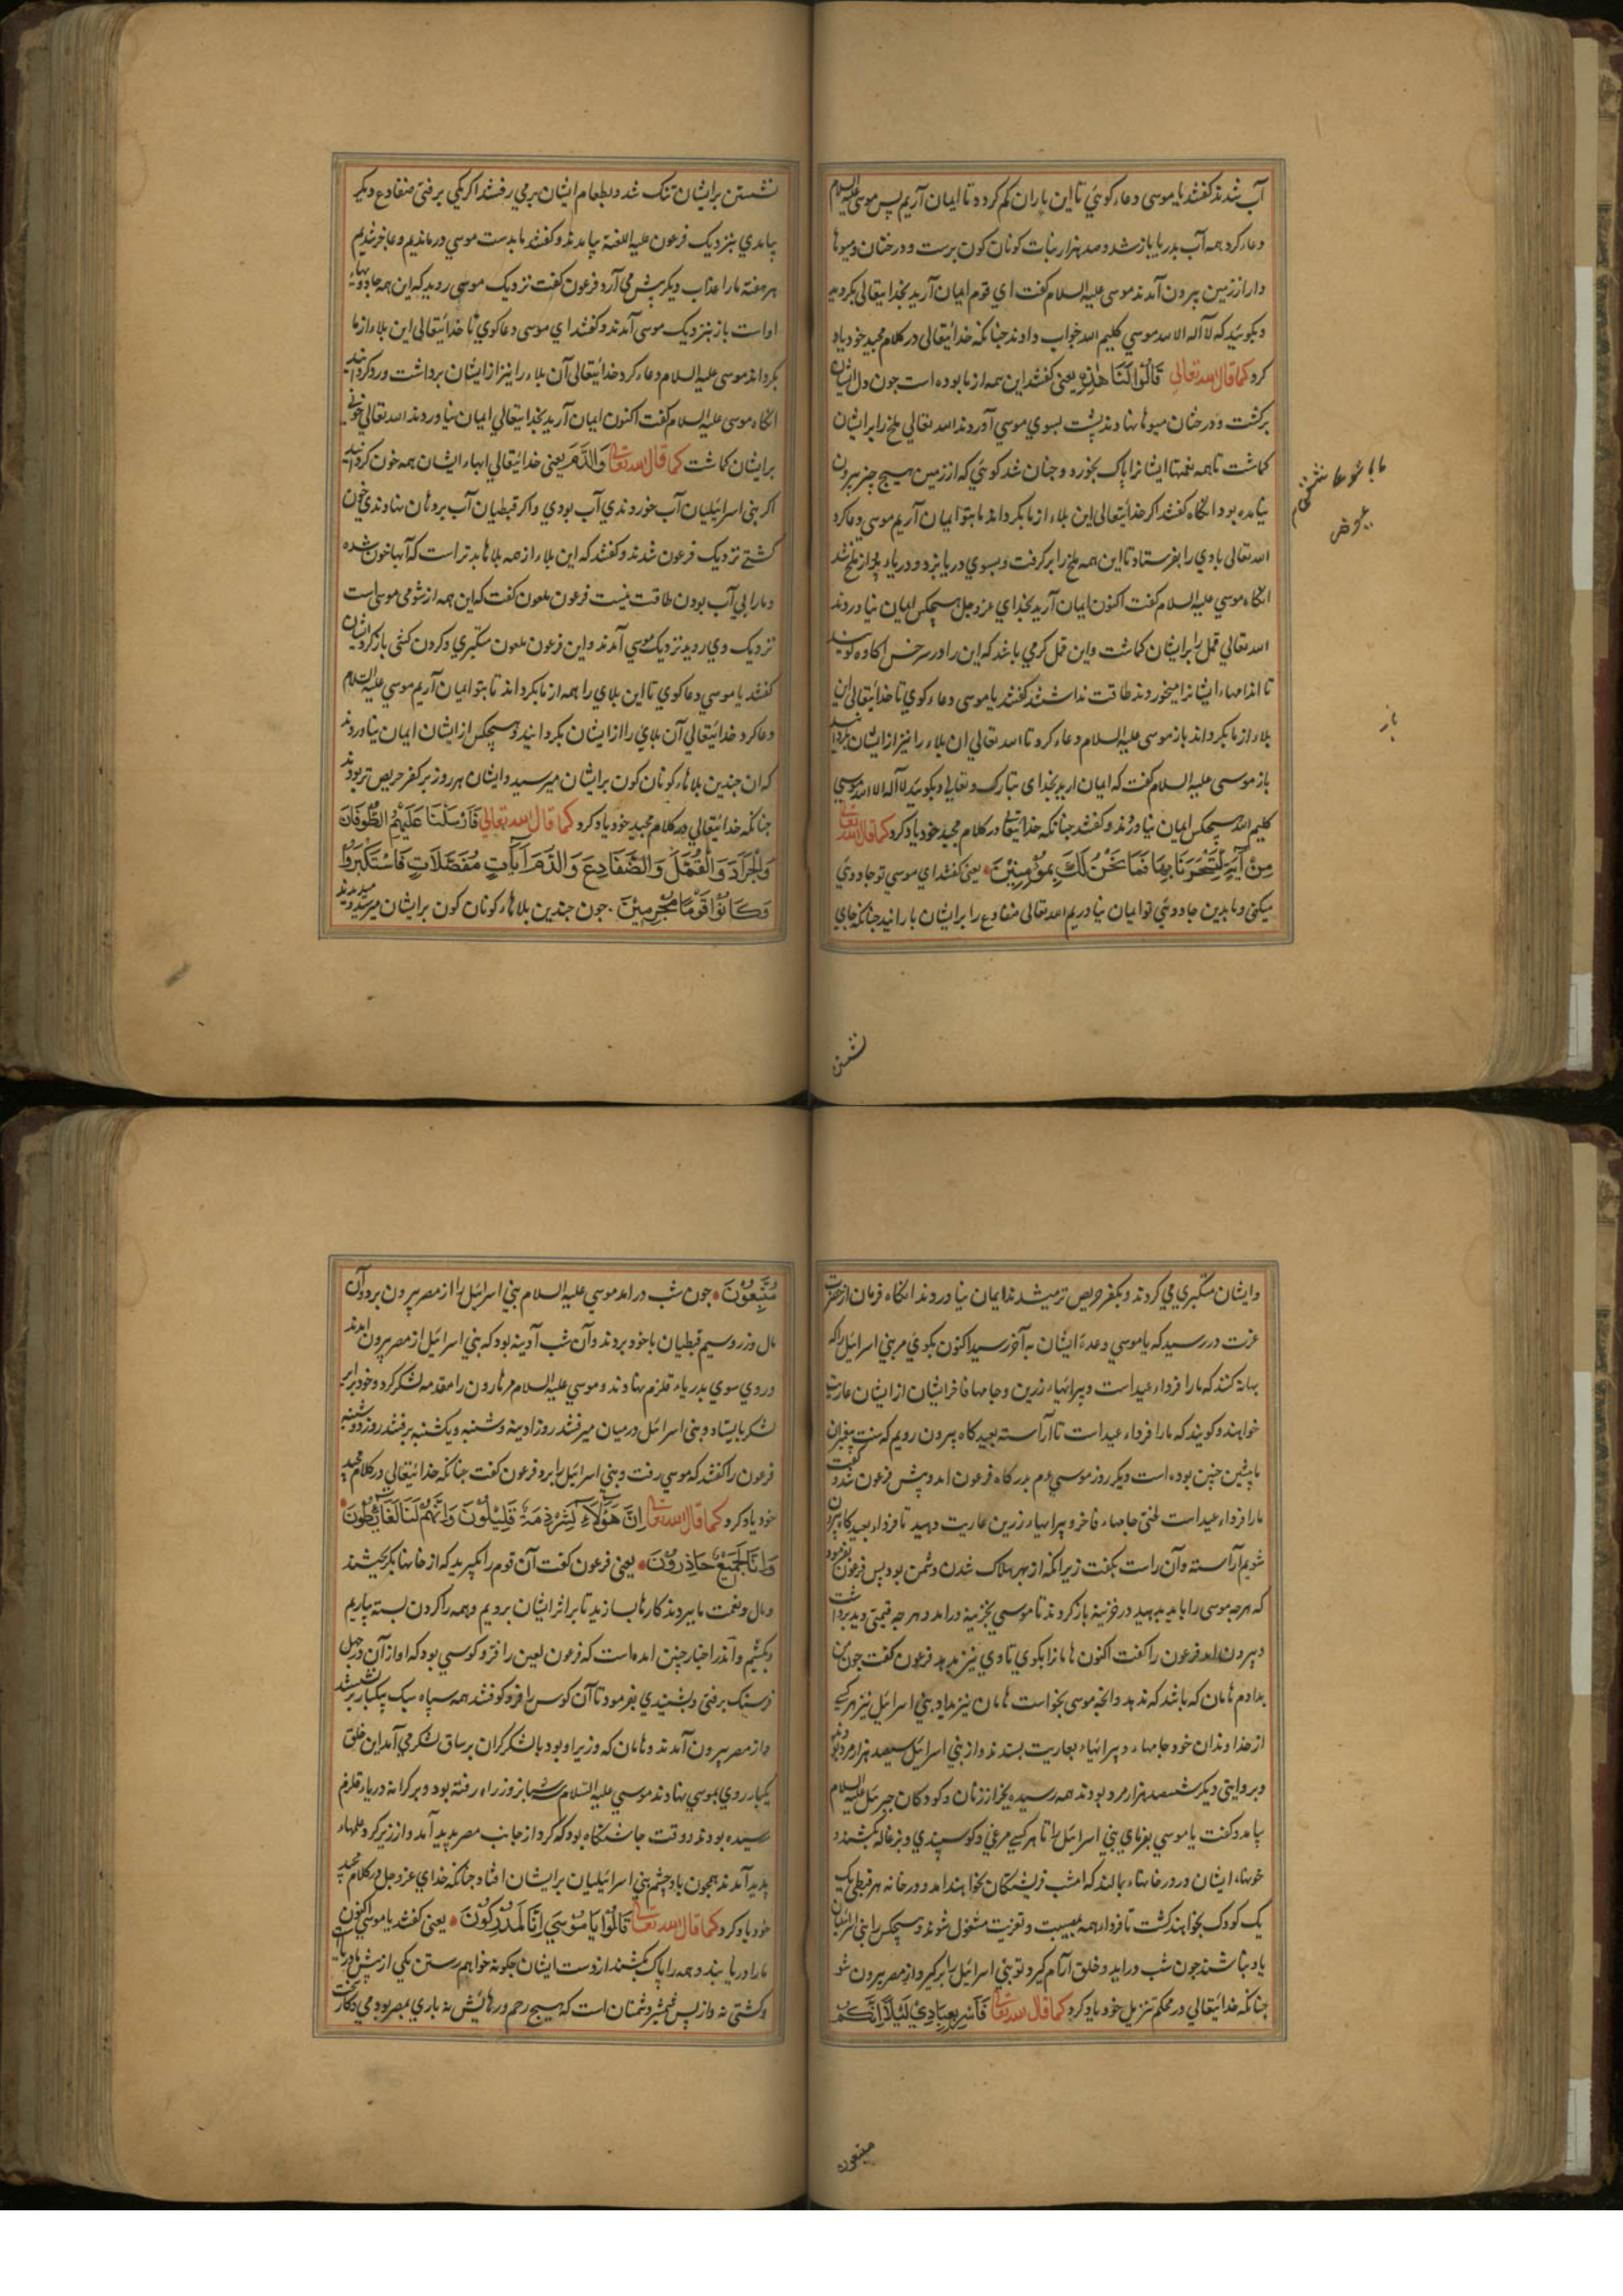 آب شدند گفتند یا موسی دعاء کوئی تا این باران کم کردد تا ایمان آریم پس موسی علیه السلام
دعاء کرد همه آب بدریا باز شد و صد هزار نبات کوناکون برست و درختان و میوها
دار از زمین بیرون آمدند موسی علیه السلام کفت ای قوم ایمان آرید بخدایتعالی بکروید
و بکوئید که لا اله الا الله موسی کلیم الله جواب دادند جنانکه خدائیتعالی در کلام مجید خود یاد
کرد کما قال الله تعالی قَالُوا لَنَا هٰذِهِ یعنی کفتند این همه از ما بوده است جون دل ایشان
برکشت و درختان میوها نهادند پشت بسوی موسی آوردند الله تعالی ملخ را بر ایشان
کماشت تا همه نعمتها ایشانرا پاک بخورد و جنان شد کوئی که از زمین هیچ جیز بیرون
نیامده بود انکاه کفتند اکر خدائیتعالی این بلاء از ما بکرداند ما بتو ایمان آریم موسی دعا کرد
الله تعالی بادی را بفرستاد تا این همه ملخ را برکرفت و بسوی دریا بزد و دریاء پر از ملخ شد
انکاه موسی علیه السلام کفت اکنون ایمان آرید بخدای عز و جل هیچکس ایمان نیاوردند
الله تعالی قمل را بر ایشان کماشت و این قمل کرمی باشد که این را در سرخس کاوه کویند
تا اندامهاء ایشانرا میخوردند طاقت نداشتند کفتند یا موسی دعاء کوی تا خدائیتعالی این
بلاء از ما بکرداند باز موسی علیه السلام دعاء کرد تا الله تعالی ان بلاء را نیز از ایشان بکردانید
باز موسی علیه السلام کفت که ایمان ارید بخدای تبارک و تعالی و بکوئید لا اله الا الله موسی
کلیم الله هیچکس ایمان نیاوردند و کفتند جنانکه خدائیتعالی در کلام مجید خود یاد کرد کما قال الله تعالی
مِنْ آيَةٍ لِتَسْحَرَنَا بِهَا فَمَا نَحْنُ لَكَ بِمُؤْمِنِينَ یعنی کفتند ای موسی تو جادوئی
میکنی و ما بدین جادوئی تو ایمان نیاوریم الله تعالی ضفادع را بر ایشان بارانید جنانکه جای
باز
نشستن
نشستن بر ایشان تنک شد و بطعام ایشان بر می رفتند اکر یکی برفتی ضفادع دیکر
بیامدی بنزدیک فرعون علیه اللعنة بیامدند و کفتند ما بدست موسی درماندیم و عاجز شدیم
هر هفته ما را عذاب دیکر پیش می آرد فرعون کفت نزدیک موسی روید که این همه جادوئیهاء
اوات باز بنزدیک موسی آمدند و کفتند ای موسی دعا کوی تا خدائیتعالی این بلاء از ما
بکرداند موسی علیه السلام دعاء کرد خدائیتعالی آن بلاء را نیز از ایشان برداشت و رد کردانید
انکاه موسی علیه السلام کفت اکنون ایمان آرید بخدایتعالی ایمان نیاوردند الله تعالی خونی
بر ایشان کماشت کما قال الله تعالی وَالدَّمَ یعنی خدائیتعالی ابهاء ایشان همه خون کردانید
اکر بنی اسرائیلیان آب خوردندی آب بودی و اکر قبطیان آب بر دهان نهادندی خون
کشتی نزدیک فرعون شدند و کفتند که این بلاء از همه بلاها بدتر است که آبها خون شده
و ما را بی آب بودن طاقت نیست فرعون ملعون کفت که این همه از شومی موسی است
نزدیک وی روید نزدیک موسی آمدند و این فرعون ملعون متکبری و کردن کشی باز کرد ایشان
کفتند یا موسی دعا کوی تا این بلای را همه از ما بکرداند تا بتو ایمان آریم موسی علیه السلام
دعا کرد خدائیتعالی آن بلای را از ایشان بکردانید و هیچکس از ایشان ایمان نیاوردند
که ان جندین بلاهاء کوناکون بر ایشان میرسید و ایشان هر روز بر کفر حریص تر بودند
جنانکه خدائیتعالی در کلام مجید خود یاد کرد کما قال الله تعالی فَأَرْسَلْنَا عَلَيْهِمُ الطُّوفَانَ
وَالْجَرَادَ وَالْقُمَّلَ وَالضَّفَادِعَ وَالدَّمَ آيَاتٍ مُفَصَّلَاتٍ فَاسْتَكْبَرُوا
وَكَانُوا قَوْمًا مُجْرِمِينَ جون جندین بلاهاء کوناکون بر ایشان میرسید میدیدند
و ایشان متکبری می کردند و بکفر حریص تر میشدند ایمان نیاوردند انکاه فرمان از حضرت
عزت در رسید که یا موسی وعدهٔ ایشان به آخر رسید اکنون بکوی مر بنی اسرائیل را که
بهانه کنند که ما را فرداء عید است و پیرایهاء زرین و جامها فاخر ایشان از ایشان عاریت
خواهند و کویند که ما را فرداء عید است تا آراسته بعیدکاه بیرون رویم که سنت پیغمبران
پیشین جنین بوده است دیکر روز موسی عم بدرکاه فرعون امد و پیش فرعون شد و کفت
ما را فرداء عید است لختی جامهاء فاخر و پیرایهاء زرین عاریت دهید تا فرداء بعیدکاه بیرون
شویم آراسته و آن راست بکفت زیرا انکه از بهر هلاک شدن دشمن بود پس فرعون بفرمود
که هر جه موسی را باید بدهید در خزینه باز کردند تا موسی بخزینه درامد و هر جه قیمتی دید برداشت
و بیرون امد فرعون را کفت اکنون هامانرا بکوی تا وی نیز بدهد فرعون کفت جون من
بدادم هامان که باشد که ندهد و انجه موسی بخواست هامان نیز بداد و بنی اسرائیل نیز هر کسی
از خداوندان خود جامهاء و پیرایهاء بعاریت بستدند و از بنی اسرائیل سیصد هزار مرد بودند
و بروایتی دیکر ششصد هزار مرد بودند همه رسیده بجز از زنان و کودکان جبرئیل علیه السلام
بیامد و کفت یا موسی بفرمای بنی اسرائیل را تا هر کسی مرغی و کوسپندی و بزغاله بکشند و
خونهاء ایشان در در خانهاء بمالند که امشب فریشتکان بخواهند امد و در خانه هر قبطی یک
یک کودک بخواهند کشت تا فرداء همه بمصیبت و تعزیت مشغول شوند و هیچکس را بنی اسرائیلیان
یاد نباشند جون شب دراید و خلق آرام کیرد تو بنی اسرائیل را برکیر و از مصر بیرون شو
جنانکه خدائیتعالی در محکم تنزیل خود یاد کرد کما قال الله تعالی فَأَسْرِ بِعِبَادِي لَيْلًا إِنَّكُمْ
متبعون
مُتَّبَعُونَ جون شب درامد موسی علیه السلام بنی اسرائیل را از مصر بیرون برد و آن
مال و زر و سیم قبطیان با خود بردند و آن شب آدینه بود که بنی اسرائیل از مصر بیرون امدند
و روی سوی بدریاء قلزم نهادند و موسی علیه السلام مر هارون را مقدمه لشکر کرد و خود برابر
لشکر بایستاد و بنی اسرائیل در میان میرفتند روز ادینه و شنبه و یکشنبه برفتند روز دوشنبه
فرعون را کفتند که موسی رفت و بنی اسرائیل را ببرد فرعون کفت جنانکه خدائیتعالی در کلام مجید
خود یاد کرد کما قال الله تعالی إِنَّ هَؤُلَاءِ لَشِرْذِمَةٌ قَلِيلُونَ وَإِنَّهُمْ لَنَا لَغَائِظُونَ
وَإِنَّا لَجَمِيعٌ حَاذِرُونَ یعنی فرعون کفت آن قوم را بکیرید که از خانها بکریختند
و مال و نعمت ما ببردند کارها بسازید تا بر اثر ایشان برویم و همه را کردن بسته بیاریم
و بکشیم و اندر اخبار جنین امده است که فرعون لعین را فر و کوسی بود که اواز آن و دهل
فرسنک برفتی و بشنیدی بفرمود تا آن کوس را فرو کوفتند همه سپاه بیک بکبار برنشستند
و از مصر بیرون آمدند و هامان که وزیر او بود با لشکر کران بر ساق لشکر می آمد این خلق
یکبار روی بموسی نهادند موسی علیه السلام شبانروز راه رفته بود و بر کرانه دریاء قلزم
رسیده بودند و وقت جاشتکاه بود که کرد از جانب مصر پدید آمد و از زیر کرد علمهاء
پدید آمدند همجون باد جشم بنی اسرائیلیان بر ایشان افتاد جنانکه خدای عز و جل در کلام مجید
خود یاد کرد کما قال الله تعالی قَالُوا يَا مُوسَى إِنَّا لَمُدْرَكُونَ یعنی کفتند یا موسی اکنون
ما را دریابند و همه را پاک بکشند از دست ایشان جکونه خواهم رستن یکی از پیش ما دریاست
و کشتی نه و از پس شمشیر دشمنان است که هیچ رحم و رهایش نه باری بمصر بودمی و کارک